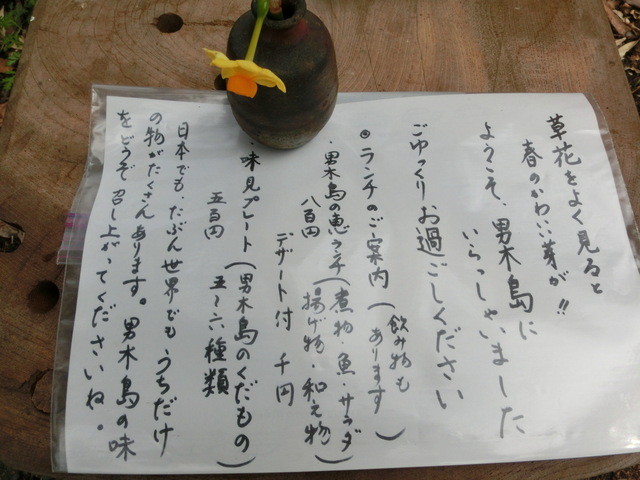 草花をよく見ると
春のかわいい芽が!!
ようこそ、男木島に
いらっしゃいました
ごゆっくりお過ごしください
◎ランチのご案内(飲み物も
あります)
・男木島の恵ランチ(煮物・魚・サラダ
八百円 揚げ物・和え物)
デザート付 千円
・味見プレート(男木島のくだもの)
五百円 五〜六種類
日本でも、たぶん世界でもうちだけ
の物がたくさんあります。男木島の味
をどうぞ召し上がってくださいね。